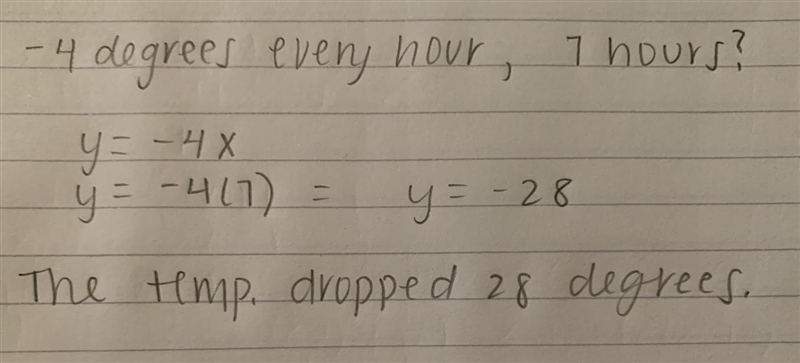 -4 degrees every hour, 7 hours?
y = -4x
y = -4(7) = y = -28
The temp. dropped 28 degrees.